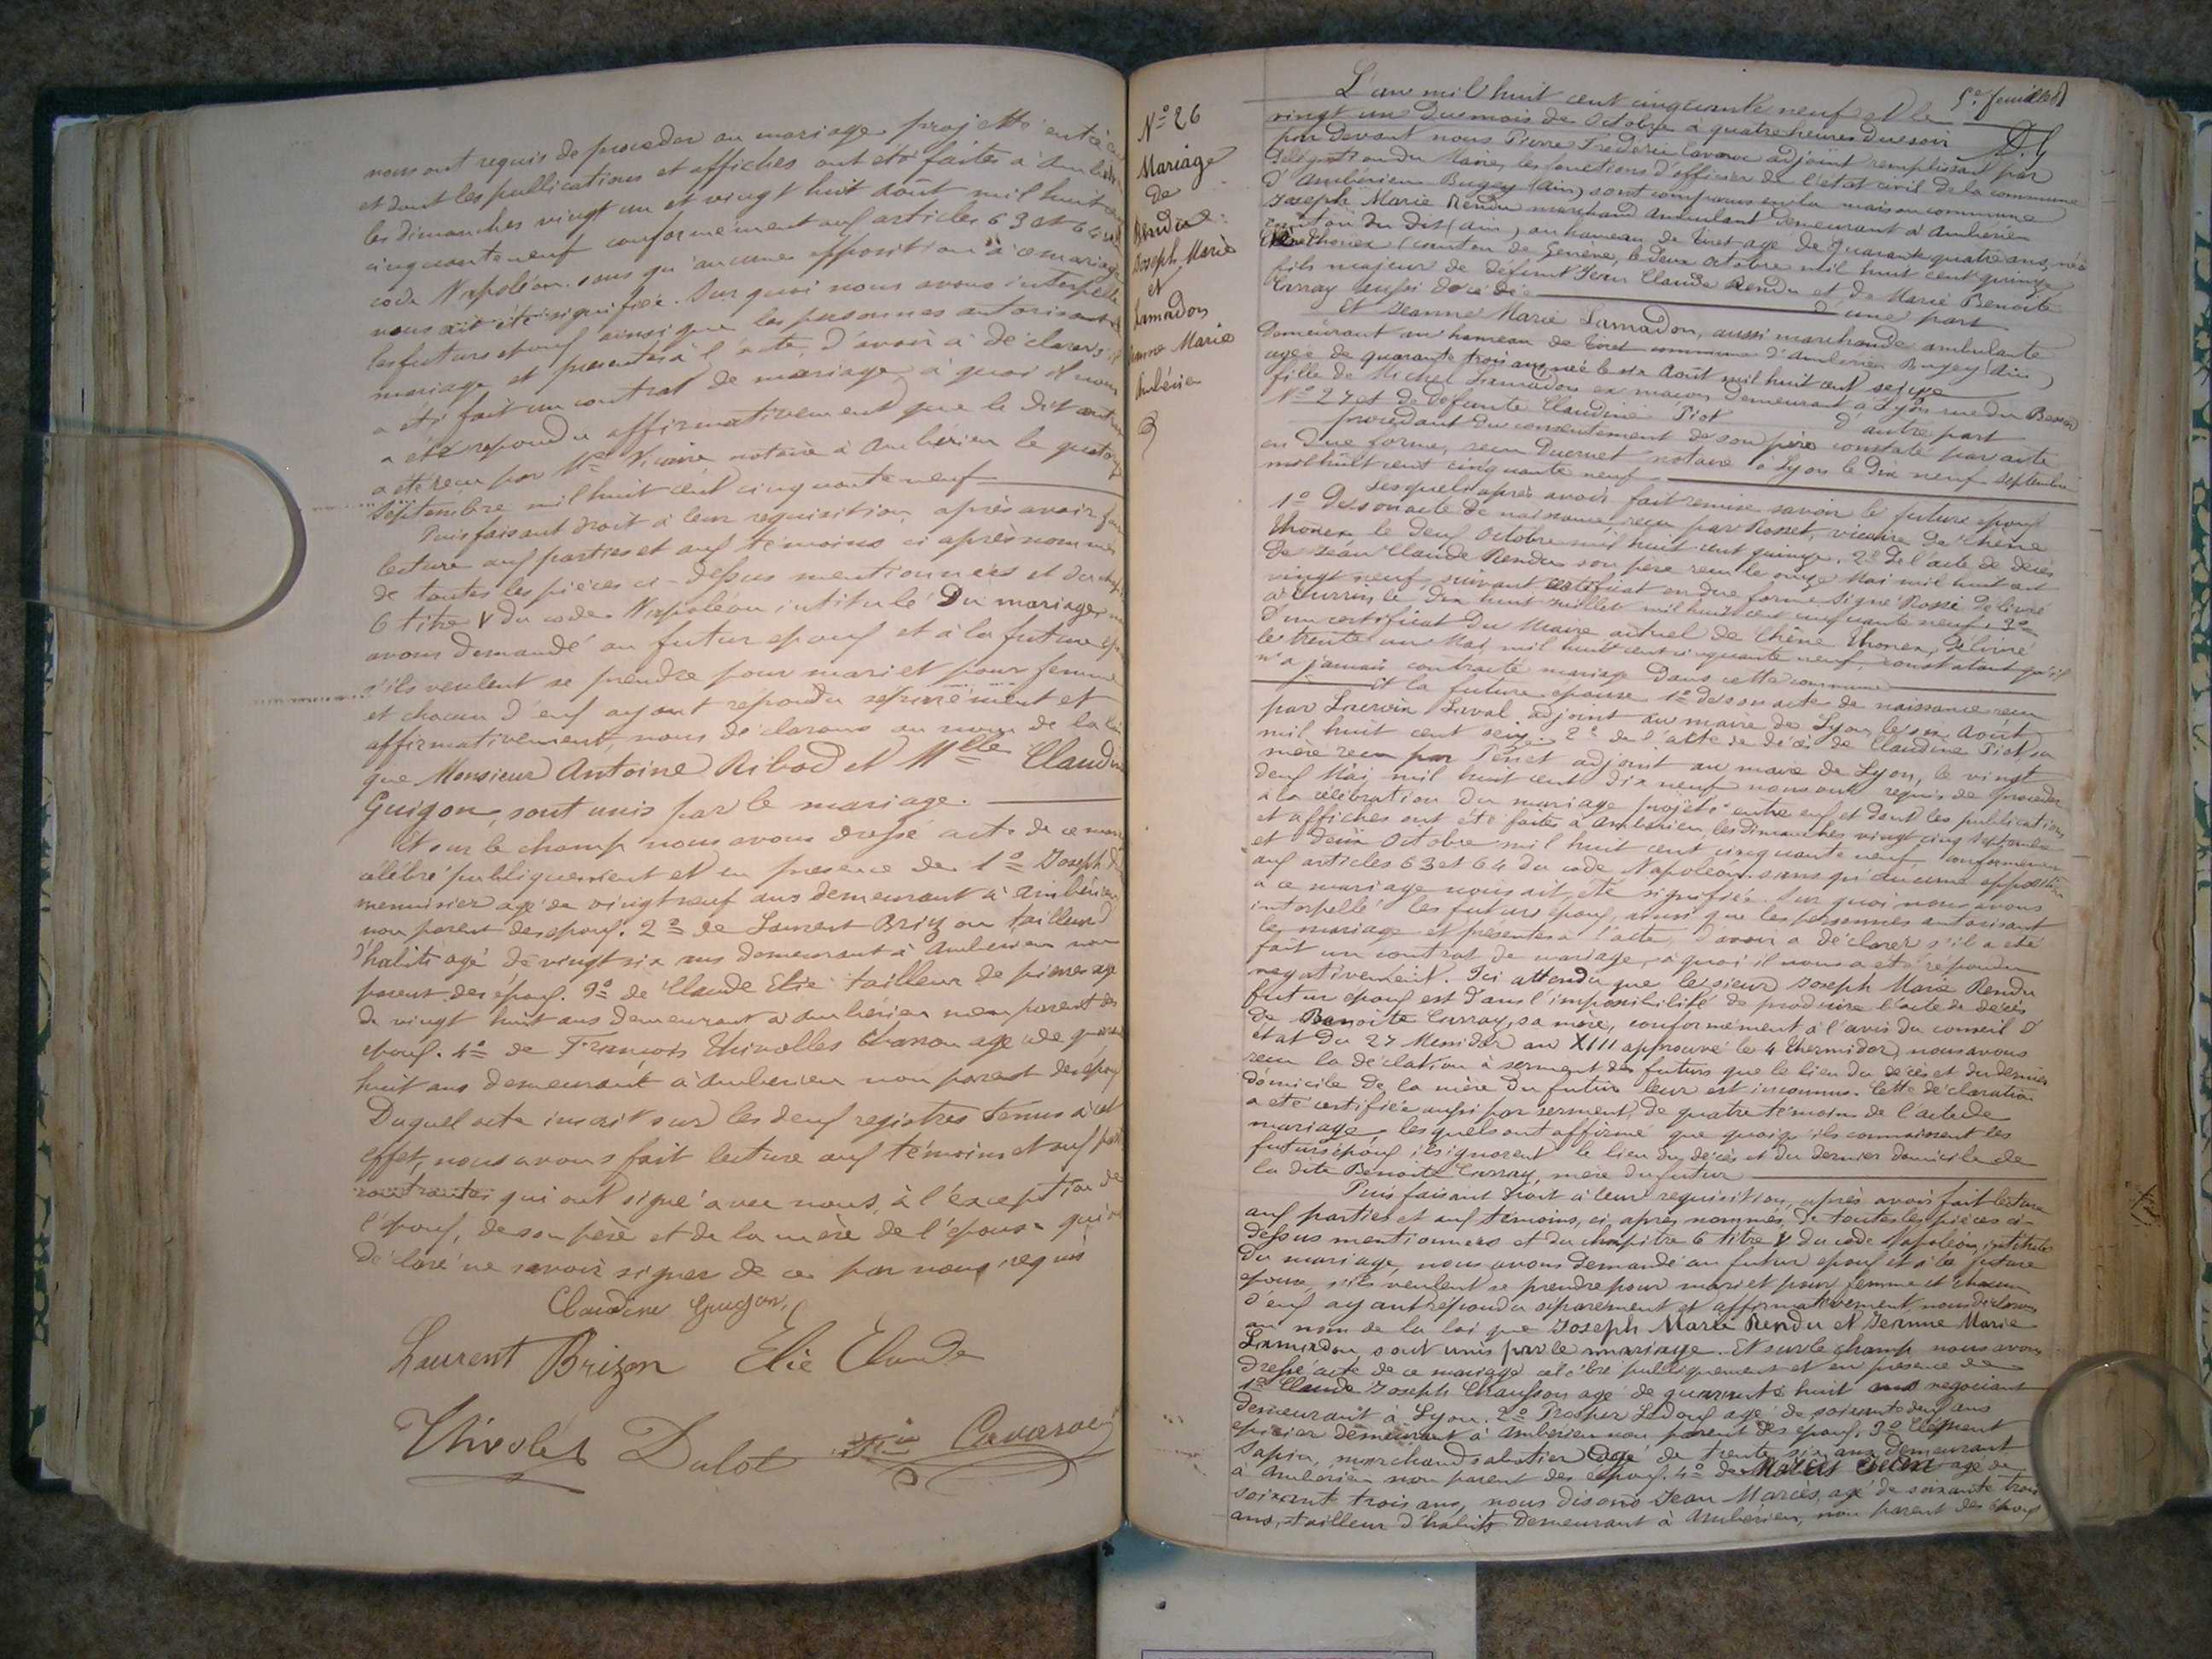 nous ont requis de proceder au mariage projetté entr'eux
et dont les publications et affiches ont été faites à Ambérieu
les dimanches vingt un et vingt huit Août mil huit cent
cinquante neuf conformement aux articles 63 et 64 du
code Napoléon. sans qu'aucune opposition à ce mariage
nous ait été signifiée. Sur quoi nous avons interpellé
les futurs epoux ainsi que les personnes autorisant le
mariage et presentes à l'acte, d'avoir à déclarer s'il
a été fait un contrat de mariage à quoi il nous
a été repondu affirmativement que le dit contrat
a été recu par Me Vicaire notaire à Ambérieu le quatorze
Septembre mil huit cent cinquante neuf
Puis faisant droit à leur requisition, après avoir fait
lecture aux parties et aux témoins ci après nommés
de toutes les pièces ci-dessus mentionnées et du chapitre
6 titre V du code Napoléon intitulé Du mariage, nous
avons demandé au futur epoux et à la future epouse
s'ils veulent se prendre pour mari et pour femme
et chacun d'eux ayant répondu séparément et
affirmativement, nous déclarons au nom de la loi
que Monsieur Antoine Ribod et Mlle Claudine
Guigon, sont unis par le mariage.
Et sur le champ nous avons dressé acte de ce mariage
célébré publiquement et en presence de 1º Joseph
menuisier agé de vingt neuf ans demeurant à Ambérieu
non parent des epoux. 2º de Laurent Brizon tailleur
d'habits agé de vingt six ans demeurant à Amberieu non
parent des époux. 3º de Claude Elie tailleur de pierres agé
de vingt huit ans demeurant à Ambérieu non parent des
epoux. 4º de François Thivolles Charron agé de quarante
huit ans demeurant à Amberieu non parent des époux
Duquel acte inscrit sur les deux registres tenus à cet
effet, nous avons fait lecture aux témoins et aux parties
contractantes qui ont signé avec nous, à l'exception de
l'époux, de son père et de la mère de l'épouse qui ont
déclaré ne savoir signer de ce par nous requis
Claudine Guigon
Laurent Brizon Elie Claude
Thivolet Dulot Cavarroc
5e feuillet
Nº 26
Mariage
de
Rendu
Joseph Marie
et
Lamadon
Jeanne Marie
Ambérieu
L'an mil huit cent cinquante neuf et le
vingt un du mois de Octobre à quatre heures du soir
par devant nous Pierre Fréderic Cavaroc adjoint remplissant par
délégation du Maire, les fonctions d'officier de l'état civil de la commune
d'Ambérieu Bugey (Ain) sont comparus en la maison commune
Joseph Marie Rendu marchand ambulant demeurant à Ambérieu
canton du dit (ain) au hameau de Tiret agé de quarante quatre ans, né à
Chêne Thonex (canton de Genève, le deux Octobre mil huit cent quinze
fils majeur de défunt Jean Claude Rendu et de Marie Benoite
Curray aussi décédée d'une part
Et Jeanne Marie Lamadon, aussi marchande ambulante
demeurant au hameau de Tiret commune d'Ambérieu Bugey (Ain)
agée de quarante trois ans, née le six Août mil huit cent seize
fille de Michel Lamadon ex maçon demeurant à Lyon rue du Bessard
Nº 27 et de défunte Claudine Piot d'autre part
procédant du consentement de son père constaté par acte
en due forme, recu Ducruet notaire à Lyon le dix neuf Septembre
mil huit cent cinquante neuf
Lesquels après avoir fait remise savoir le futur epoux
1º De son acte de naissance, recu par Rosset, vicaire de Chêne
Thonex le deux Octobre mil huit cent quinze. 2º De l'acte de décès
de Jean Claude Rendu son père recu le onze Mai mil huit cent
vingt neuf, suivant certificat en due forme signé Rossi délivré
à Turrin, le dix huit Juillet mil huit cent cinquante neuf. 3º
D'un certificat du Maire actuel de Chêne Thonex, délivré
le trente un Mai mil huit cent cinquante neuf, constatant qu'il
n'a jamais contracté mariage dans cette commune
Et la future epouse 1º de son acte de naissance recu
par Laurvin Laval adjoint au maire de Lyon le six Août
mil huit cent seize. 2º de l'acte de décès de Claudine Piot, sa
mère recu par Penet adjoint au maire de Lyon, le vingt
deux Mai mil huit cent dix neuf nous ont requis de proceder
à la célébration du mariage projeté entre eux et dont les publications
et affiches ont été faites à Ambérieu, les dimanches vingt cinq Septembre
et deux Octobre mil huit cent cinquante neuf conformement
aux articles 63 et 64 du code Napoléon. sans qu'aucune opposition
à ce mariage nous ait été signifiée. Sur quoi nous avons
interpellé les futurs epoux, ainsi que les personnes autorisant
le mariage et presentes à l'acte, d'avoir à déclarer s'il a été
fait un contrat de mariage, à quoi il nous a été répondu
negativement. Ici attendu que le sieur Joseph Marie Rendu
futur epoux est dans l'impossibilité de produire l'acte de décès
de Benoite Curray, sa mère, conformément à l'avis du conseil d'
état du 27 Messidor an XIII approuvé le 4 thermidor, nous avons
recu la déclation à serment des futurs que le lieu du décès et du dernier
domicile de la mère du futur leur est inconnus. Cette déclaration
a été certifiée aussi par serment, de quatre témoins de l'acte de
mariage, lesquels ont affirmé que quoiqu'ils connaissent les
futurs époux ils ignorent le lieu du décès et du dernier domicile de
la dite Benoite Curray, mère du futur
Puis faisant droit à leur requisition, après avoir fait lecture
aux parties et aux témoins, ci après nommés, de toutes les pièces ci-
dessus mentionnées et du chapitre 6 titre V du code Napoléon, intitulé
Du mariage, nous avons demandé au futur epoux et à la future
epouse, s'ils veulent se prendre pour mari et pour femme et chacun
d'eux ayant répondu séparément et affirmativement, nous déclarons
au nom de la loi que Joseph Marie Rendu et Jeanne Marie
Lamadon sont unis par le mariage. Et sur le champ nous avons
dressé acte de ce mariage célébré publiquement et en presence de
1º Claude Joseph Chausson agé de quarante huit ans negociant
demeurant à Lyon. 2º Prosper Ledoux agé de soixante deux ans
epicier demeurant à Amberieu non parent des epoux. 3º Clément
Sapin, marchand sabotier agé de trente six ans demeurant
à Ambérieu non parent des epoux. 4º de Marcès Jean agé de
soixante trois ans, nous disons Jean Marcès, agé de soixante trois
ans, tailleur d'habits demeurant à Ambérieu, non parent des époux